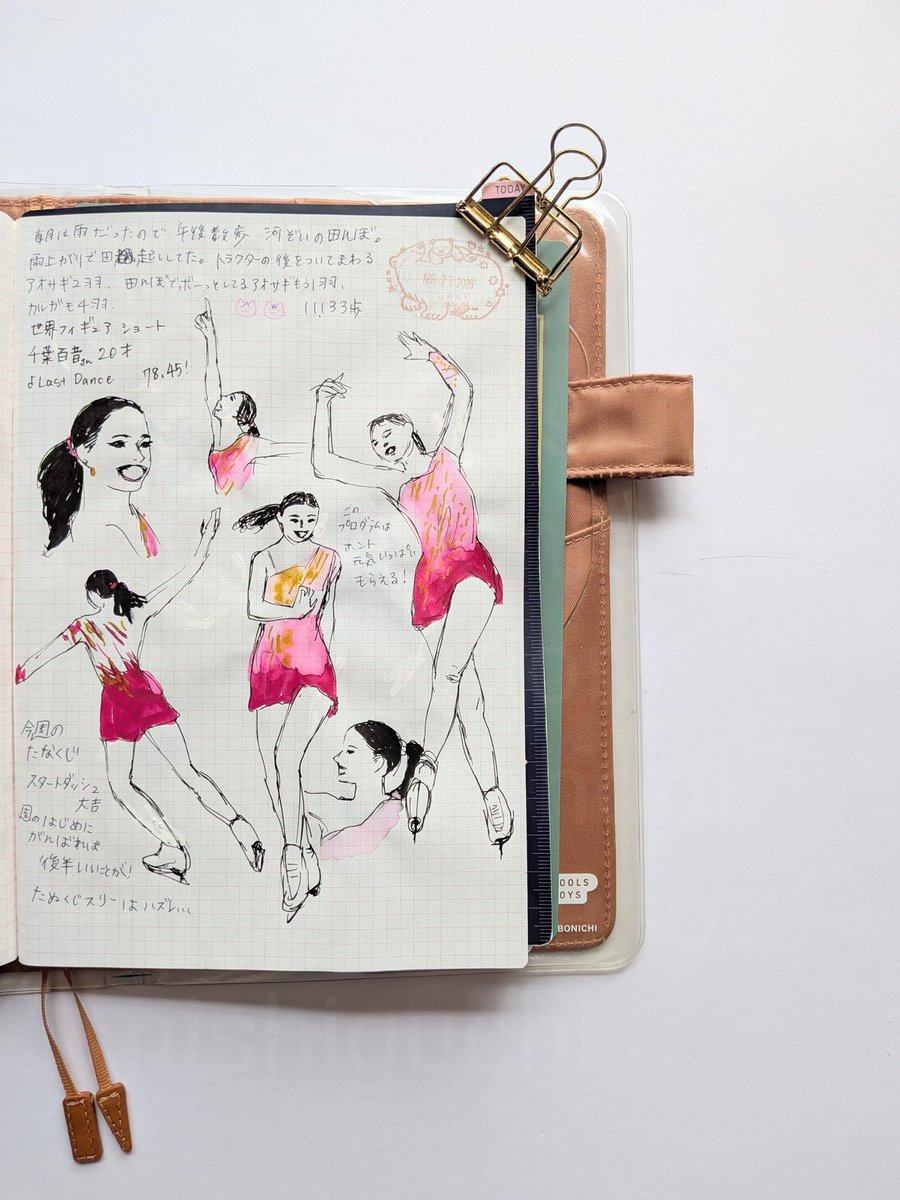 朝は雨だったので 午後散歩 河ぞいの田んぼ。
雨上がりで田起ししてた。トラクターの後をついてまわる
アオサギ2羽、田んぼでボーっとしてるアオサギもう1羽、
カルガモ4羽.
11,133歩
世界フィギュア ショート
千葉百音さん 20才
♪Last Dance 78.45!
この
プログラムは
ホント
元気いっぱいに
もらえる!
今週の
たなくじ
スタートダッシュ
大吉
週のはじめに
がんばれば
後半いいことが!
たぬくじスリーはハズレ...
TODAY
TOOLS
TOYS
HOBONICHI